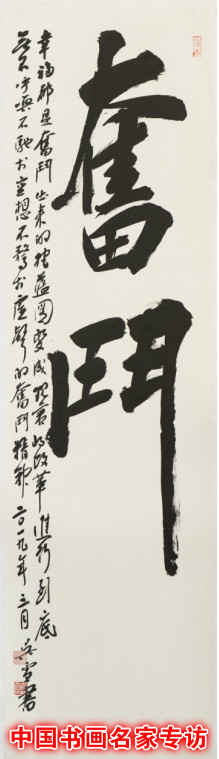 奮鬥
幸福都是奮鬥出來的把藍圖變成現實將改革進行到底
無不守無不馳於空想不騖於虛聲的奮鬥精神二〇一九年三月吳雪書
中国书画名家专访